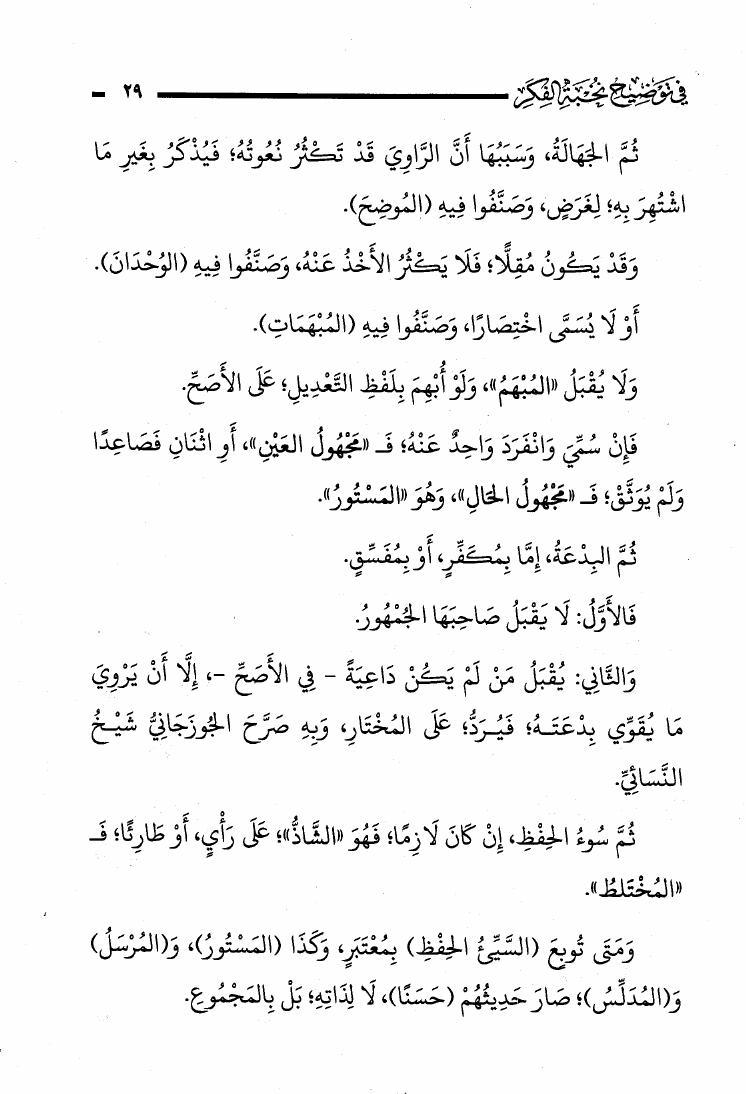 في توضيح نخبة الفكر ٢٩
ثُمَّ الجَهَالَةُ، وَسَبَبُهَا أَنَّ الرَّاوِيَ قَدْ تَكْثُرُ نُعُوتُهُ؛ فَيُذْكَرُ بِغَيرِ مَا
اشْتُهِرَ بِهِ؛ لِغَرَضٍ، وَصَنَّفُوا فِيهِ (المُوضِحَ).
وَقَدْ يَكُونُ مُقِلًّا؛ فَلَا يَكْثُرُ الأَخْذُ عَنْهُ، وَصَنَّفُوا فِيهِ (الوُحْدَانَ).
أَوْ لَا يُسَمَّى اخْتِصَارًا، وَصَنَّفُوا فِيهِ (المُبْهَمَاتِ).
وَلَا يُقْبَلُ «المُبْهَمُ»، وَلَوْ أُبْهِمَ بِلَفْظِ التَّعْدِيلِ؛ عَلَى الأَصَحِّ.
فَإِنْ سُمِّيَ وَانْفَرَدَ وَاحِدٌ عَنْهُ؛ فَـ «مَجْهُولُ العَيْنِ»، أَوِ اثْنَانِ فَصَاعِدًا
وَلَمْ يُوَثَّقْ؛ فَـ «مَجْهُولُ الحَالِ»، وَهُوَ «المَسْتُورُ».
ثُمَّ البِدْعَةُ، إِمَّا بِمُكَفِّرٍ، أَوْ بِمُفَسِّقٍ.
فَالأَوَّلُ: لَا يَقْبَلُ صَاحِبَهَا الجُمْهُورُ.
وَالثَّانِي: يُقْبَلُ مَنْ لَمْ يَكُنْ دَاعِيَةً - فِي الأَصَحِّ -، إِلَّا أَنْ يَرْوِيَ
مَا يُقَوِّي بِدْعَتَـهُ؛ فَيُـرَدُّ؛ عَلَى المُخْتَارِ، وَبِهِ صَرَّحَ الجُوزَجَانِيُّ شَيْـخُ
النَّسَائِيِّ.
ثُمَّ سُوءُ الحِفْظِ، إِنْ كَانَ لَازِمًا؛ فَهُوَ «الشَّاذُّ»؛ عَلَى رَأْيٍ، أَوْ طَارِئًا؛ فَـ
«المُخْتَلطُ».
وَمَتَى تُوبِعَ (السَّيِّئُ الحِفْظِ) بِمُعْتَبَرٍ، وَكَذَا (المَسْتُورُ)، وَ(المُرْسَلُ)
وَ(المُدَلِّسُ)؛ صَارَ حَدِيثُهُمْ (حَسَنًا)، لَا لِذَاتِهِ؛ بَلْ بِالمَجْمُوعِ.